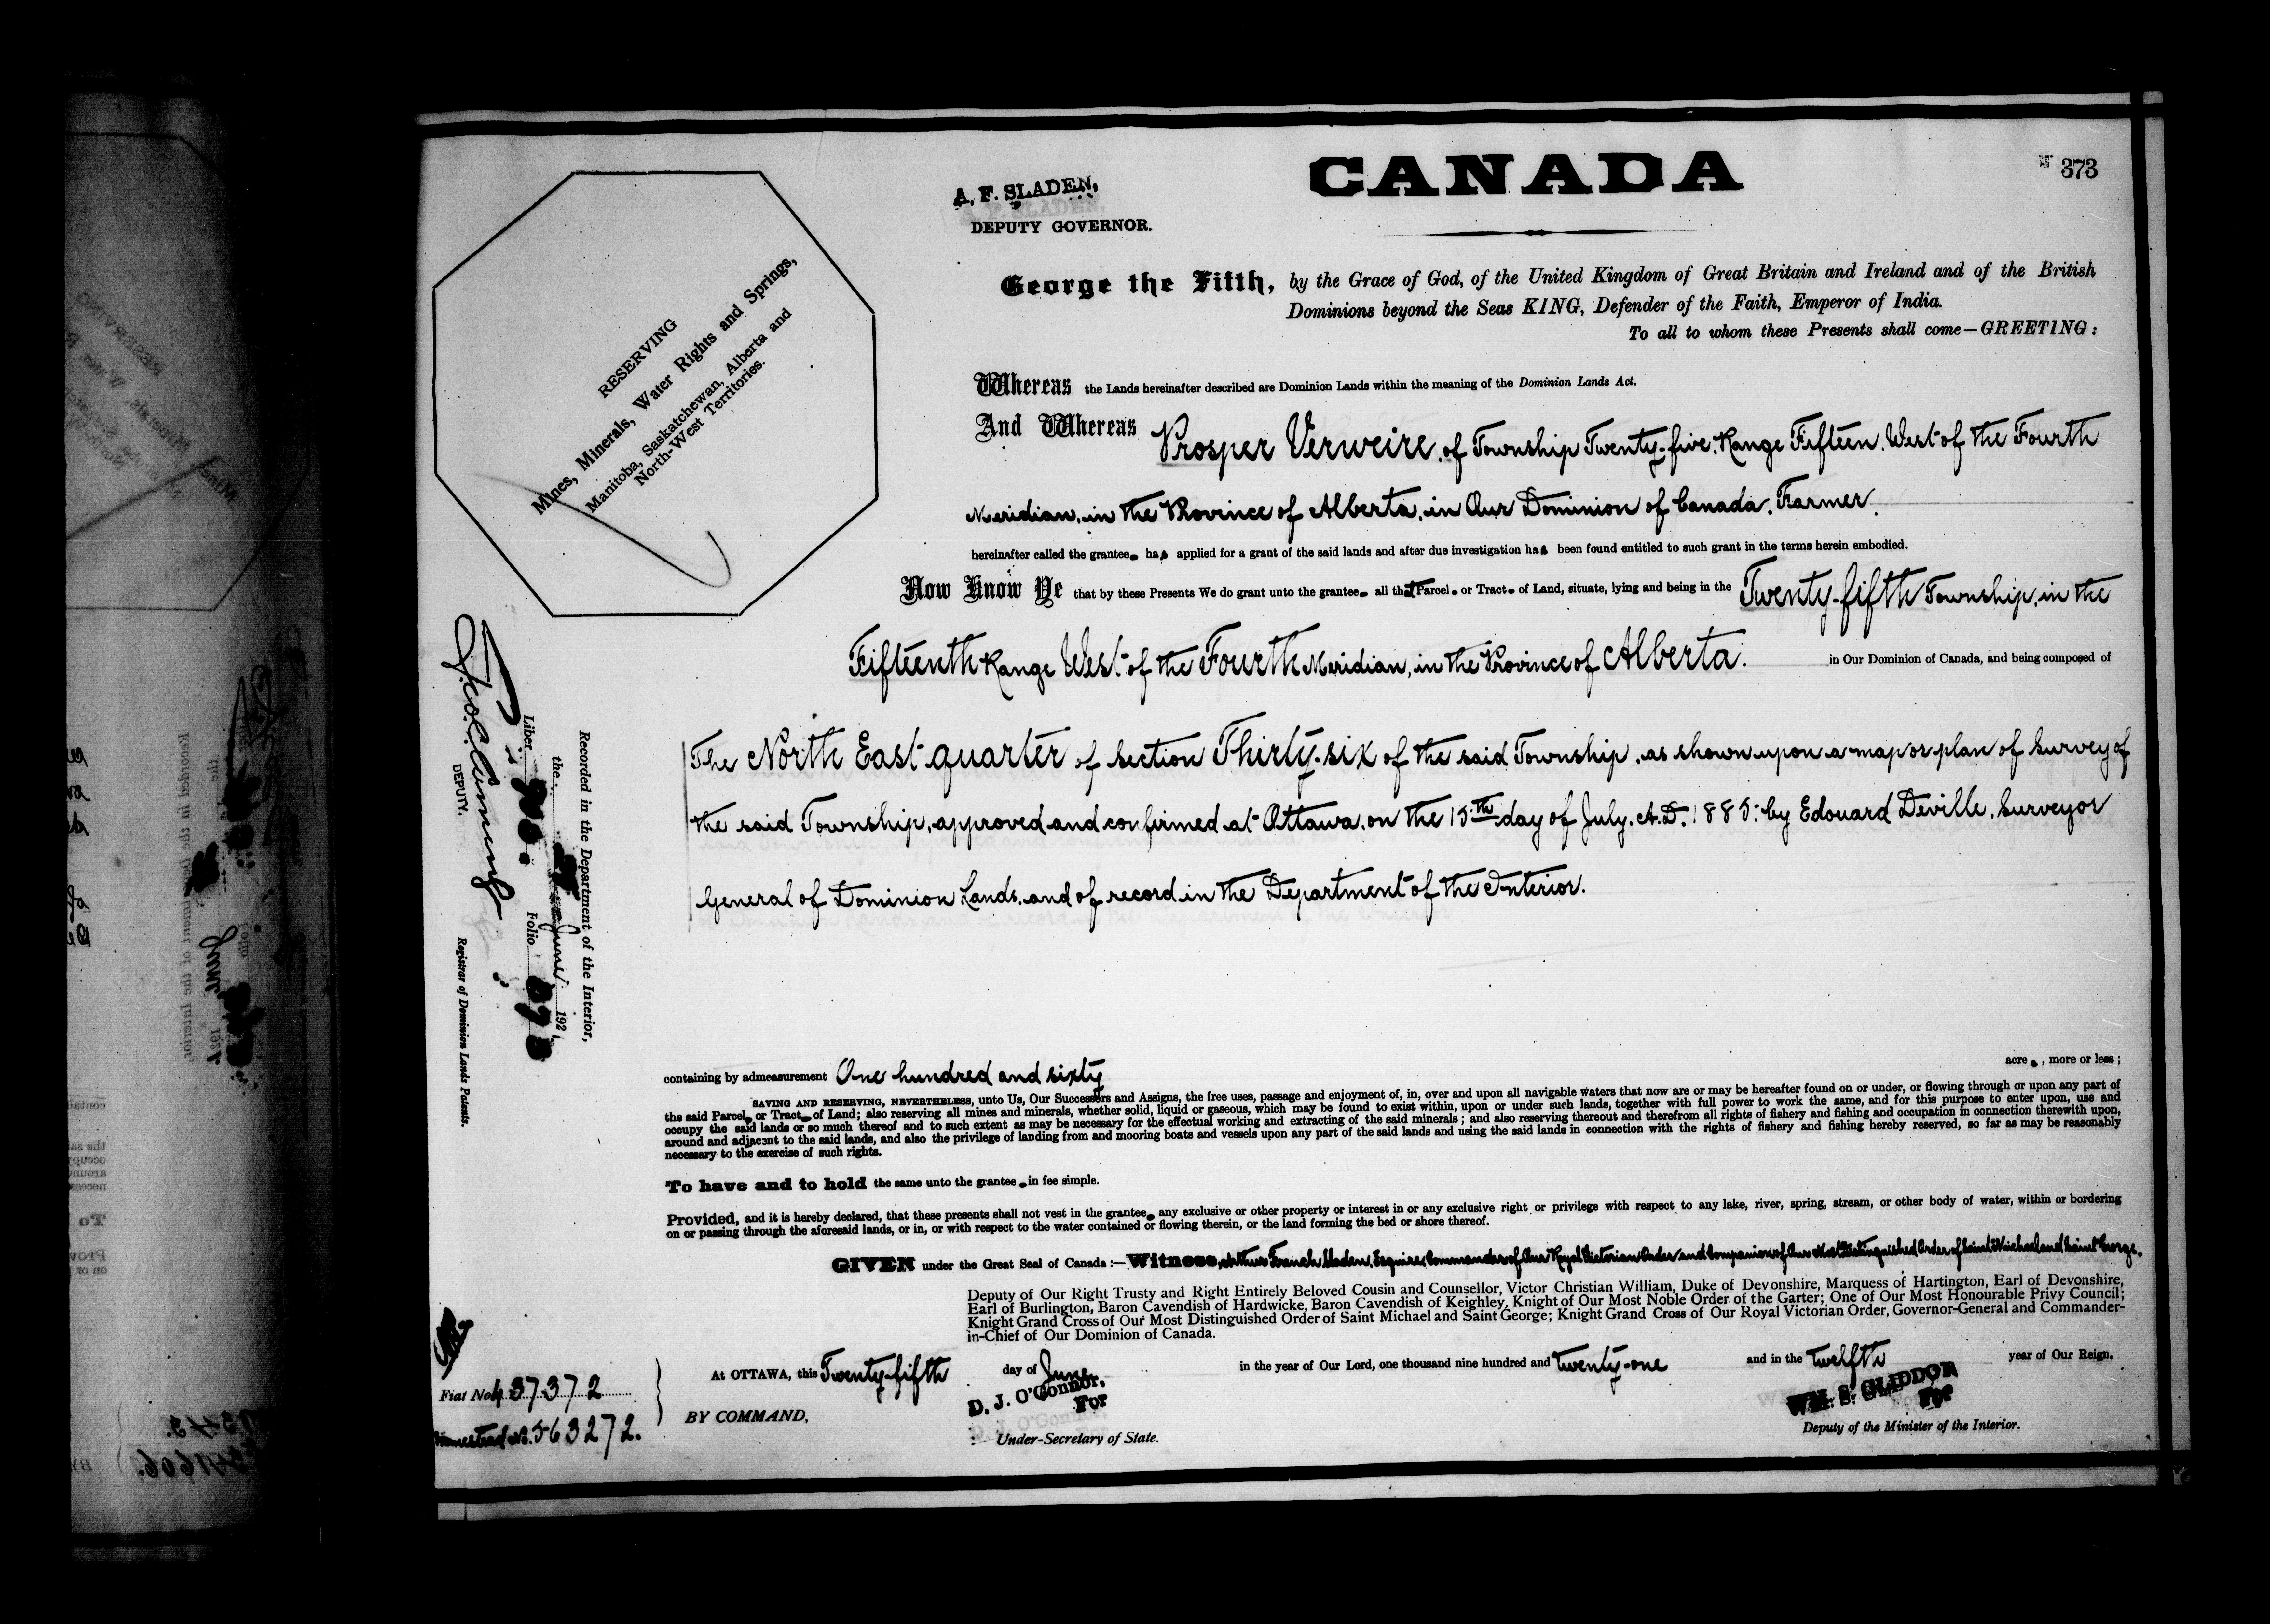 CANADA
373
A. F. SLADEN,
DEPUTY GOVERNOR.
RESERVING
Mines, Minerals, Water Rights and Springs,
Manitoba, Saskatchewan, Alberta and
North-West Territories.
George the Fifth, by the Grace of God, of the United Kingdom of Great Britain and Ireland and of the British
Dominions beyond the Seas KING, Defender of the Faith, Emperor of India.
To all to whom these Presents shall come—GREETING:
Whereas the Lands hereinafter described are Dominion Lands within the meaning of the Dominion Lands Act.
And Whereas Prosper Verweire, of Township Twenty-five, Range Fifteen, West of the Fourth
Meridian, in the Province of Alberta, in Our Dominion of Canada, Farmer,
hereinafter called the grantee has applied for a grant of the said lands and after due investigation has been found entitled to such grant in the terms herein embodied.
Now Know Ye that by these Presents We do grant unto the grantee all that Parcel or Tract of Land, situate, lying and being in the Twenty-fifth Township, in the
Fifteenth Range West of the Fourth Meridian, in the Province of Alberta. in Our Dominion of Canada, and being composed of
The North East quarter of Section Thirty-six of the said Township, as shown upon a map or plan of Survey of
the said Township, approved and confirmed at Ottawa, on the 15th day of July, A.D. 1885: by Edouard Deville, Surveyor
General of Dominion Lands, and of record in the Department of the Interior.
Recorded in the Department of the Interior,
the June 192
Liber Folio
DEPUTY. Registrar of Dominion Lands Patents.
containing by admeasurement One hundred and sixty acres, more or less;
SAVING AND RESERVING, NEVERTHELESS, unto Us, Our Successors and Assigns, the free uses, passage and enjoyment of, in, over and upon all navigable waters that now are or may be hereafter found on or under, or flowing through or upon any part of
the said Parcel or Tract of Land; also reserving all mines and minerals, whether solid, liquid or gaseous, which may be found to exist within, upon or under such lands, together with full power to work the same, and for this purpose to enter upon, use and
occupy the said lands or so much thereof and to such extent as may be necessary for the effectual working and extracting of the said minerals; and also reserving thereout and therefrom all rights of fishery and fishing and occupation in connection therewith upon,
around and adjacent to the said lands, and also the privilege of landing from and mooring boats and vessels upon any part of the said lands and using the said lands in connection with the rights of fishery and fishing hereby reserved, so far as may be reasonably
necessary to the exercise of such rights.
To have and to hold the same unto the grantee in fee simple.
Provided, and it is hereby declared, that these presents shall not vest in the grantee any exclusive or other property or interest in or any exclusive right or privilege with respect to any lake, river, spring, stream, or other body of water, within or bordering
on or passing through the aforesaid lands, or in, or with respect to the water contained or flowing therein, or the land forming the bed or shore thereof.
GIVEN under the Great Seal of Canada:—Witness, Arthur French Sladen, Esquire, Commander of Our Royal Victorian Order and Companion of Our Most Distinguished Order of Saint Michael and Saint George,
Deputy of Our Right Trusty and Right Entirely Beloved Cousin and Counsellor, Victor Christian William, Duke of Devonshire, Marquess of Hartington, Earl of Devonshire,
Earl of Burlington, Baron Cavendish of Hardwicke, Baron Cavendish of Keighley, Knight of Our Most Noble Order of the Garter; One of Our Most Honourable Privy Council;
Knight Grand Cross of Our Most Distinguished Order of Saint Michael and Saint George; Knight Grand Cross of Our Royal Victorian Order, Governor-General and Commander-
in-Chief of Our Dominion of Canada.
At OTTAWA, this Twenty-fifth day of June in the year of Our Lord, one thousand nine hundred and twenty-one and in the twelfth year of Our Reign.
Fiat No. 437372
Homestead No. 563272.
BY COMMAND,
D. J. O'Connor,
For
Under-Secretary of State.
WM. S. GLIDDON
For
Deputy of the Minister of the Interior.